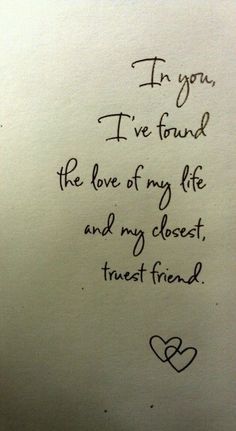 In you,
I've found
the love of my life
and my closest,
truest friend.